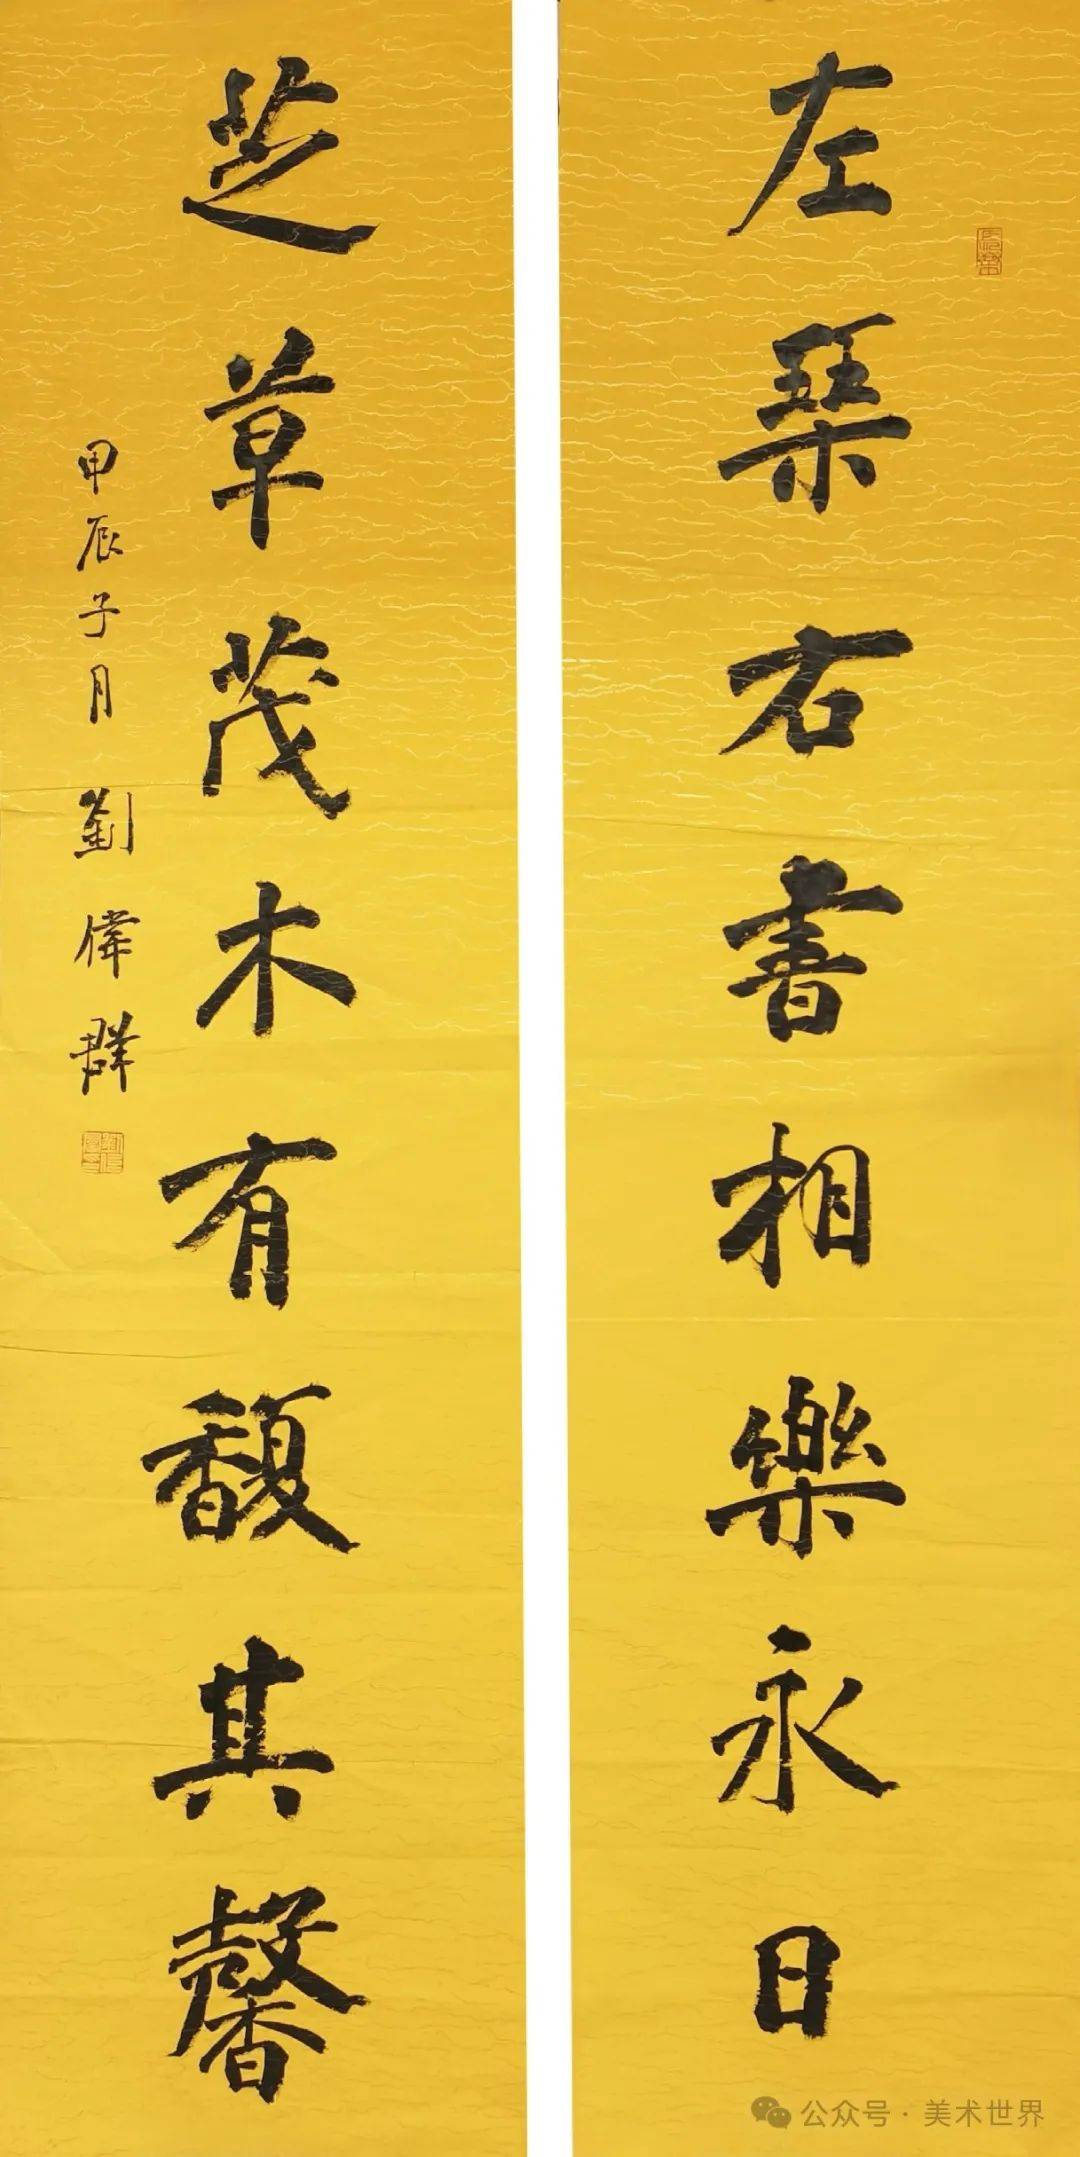 左琴右書相樂永日
芝草茂木有馥其馨
甲辰子月劉偉群
公众号·美术世界